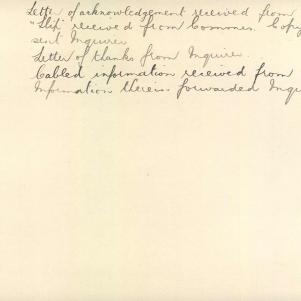 Letter of acknowledgement received from
"Slip" received from Commrs. Copy
sent Inquirer
Letter of thanks from Inquirer.
Cabled information received from
Information therein forwarded Inqu